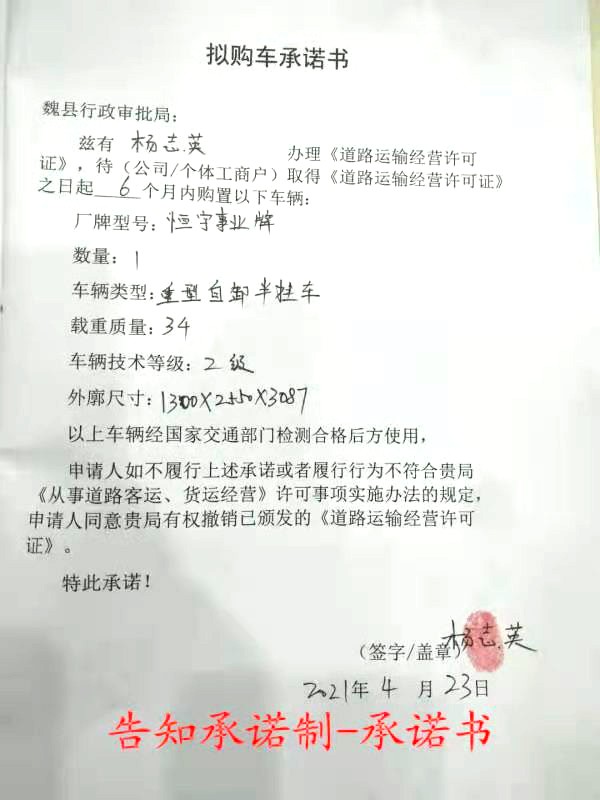 拟购车承诺书
魏县行政审批局：
兹有 杨志英 办理《道路运输经营许可
证》，待（公司/个体工商户）取得《道路运输经营许可证》
之日起 6 个月内购置以下车辆：
厂牌型号：恒宇事业牌
数量：1
车辆类型：重型自卸半挂车
载重质量：34
车辆技术等级：2级
外廓尺寸：1300X2550X3087
以上车辆经国家交通部门检测合格后方使用，
申请人如不履行上述承诺或者履行行为不符合贵局
《从事道路客运、货运经营》许可事项实施办法的规定，
申请人同意贵局有权撤销已颁发的《道路运输经营许可
证》。
特此承诺！
（签字/盖章）杨志英
2021年 4 月 23日
告知承诺制-承诺书